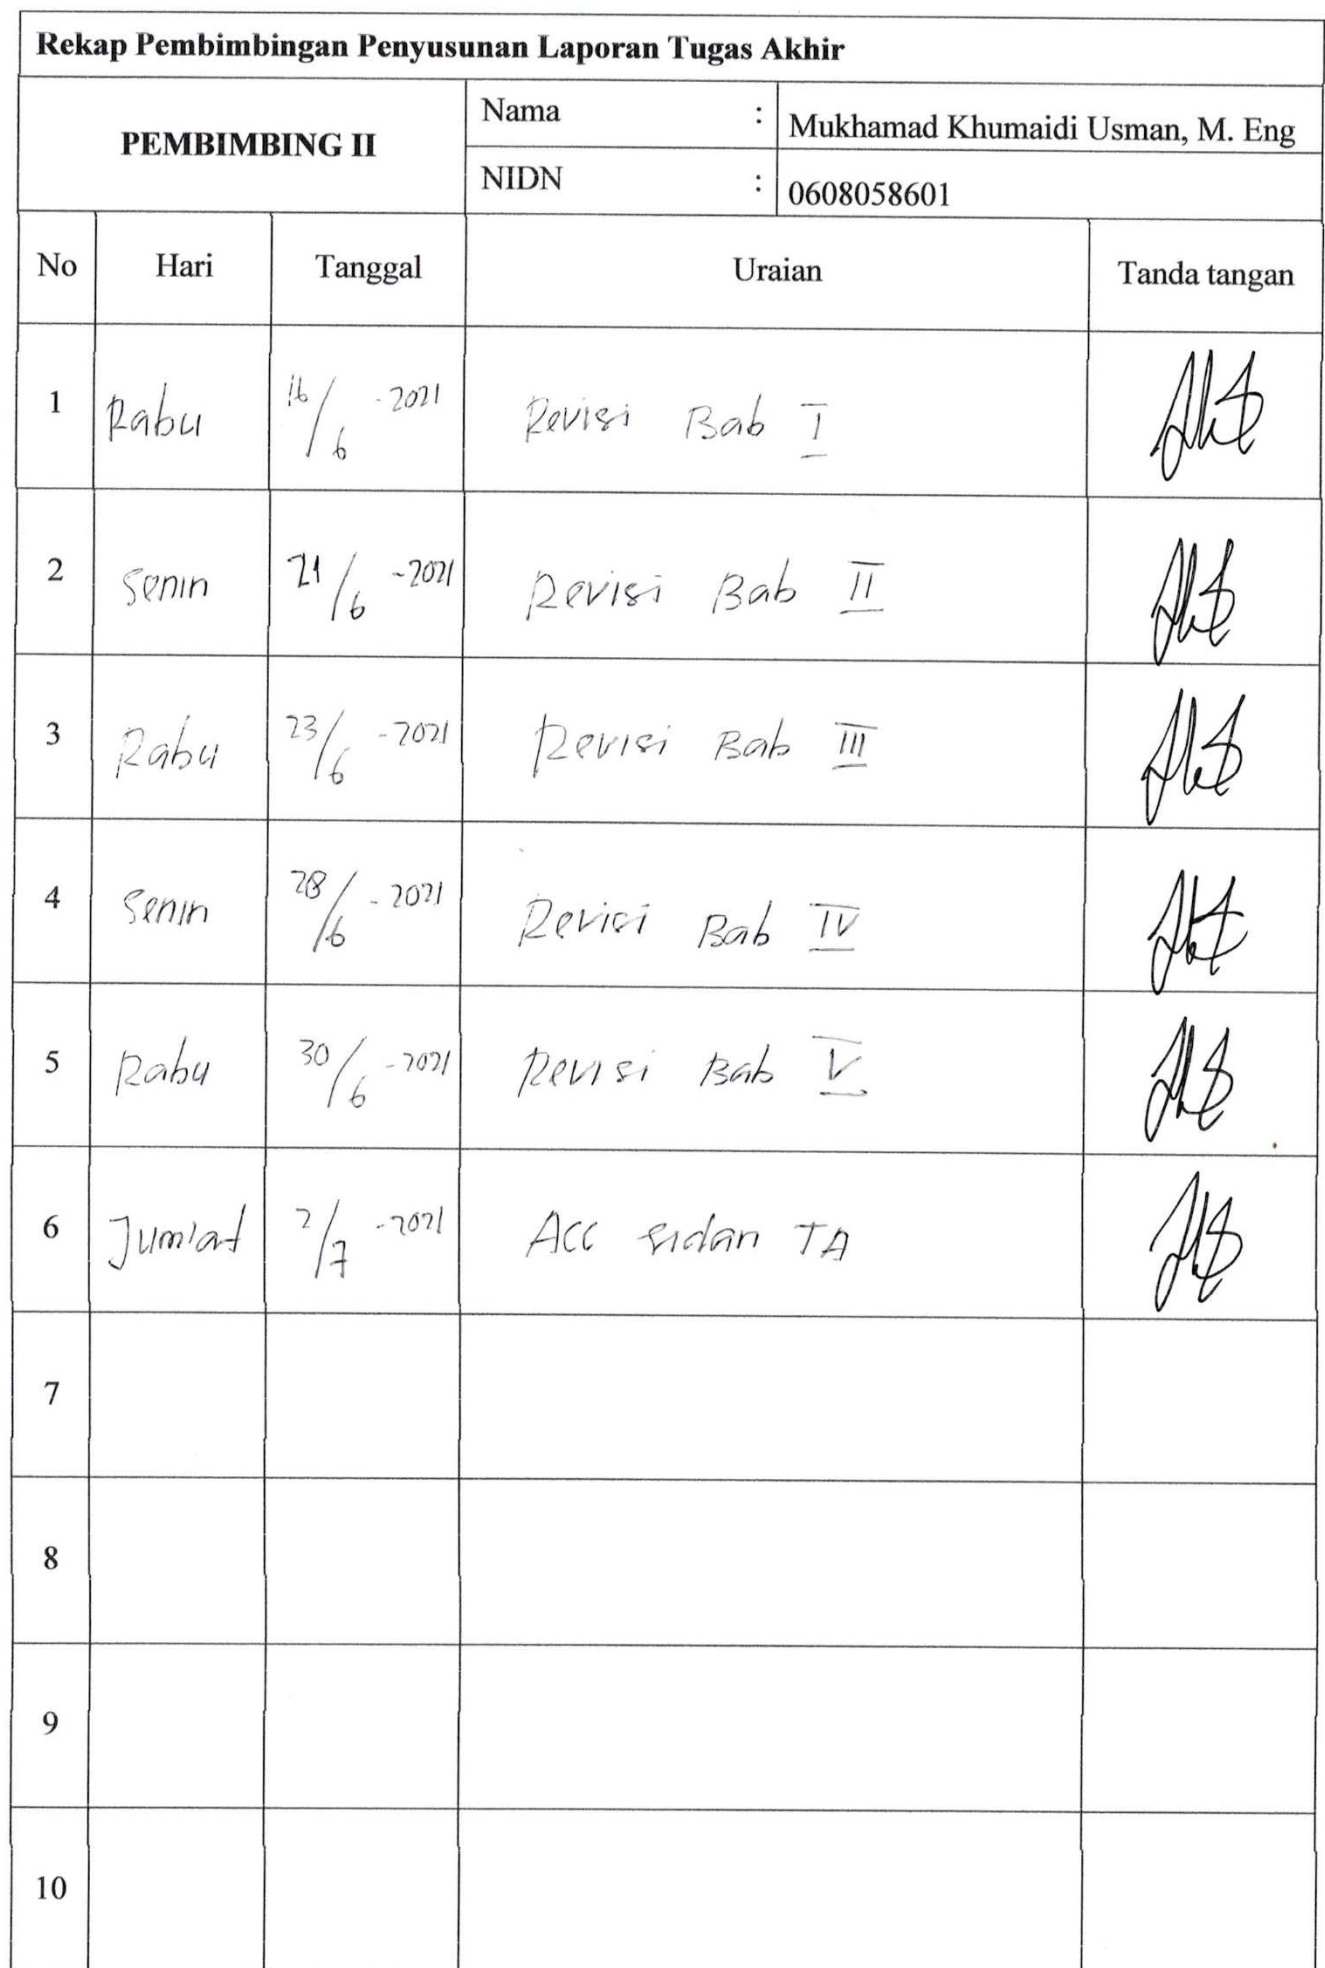 Rekap Pembimbingan Penyusunan Laporan Tugas Akhir
PEMBIMBING II
Nama : Mukhamad Khumaidi Usman, M. Eng
NIDN : 0608058601
No Hari Tanggal Uraian Tanda tangan
1 Rabu 16/6 -2021 Revisi Bab I
2 Senin 21/6 -2021 Revisi Bab II
3 Rabu 23/6 -2021 Revisi Bab III
4 Senin 28/6 -2021 Revisi Bab IV
5 Rabu 30/6 -2021 Revisi Bab V
6 Jum'at 2/7 -2021 Acc sidan TA
7
8
9
10